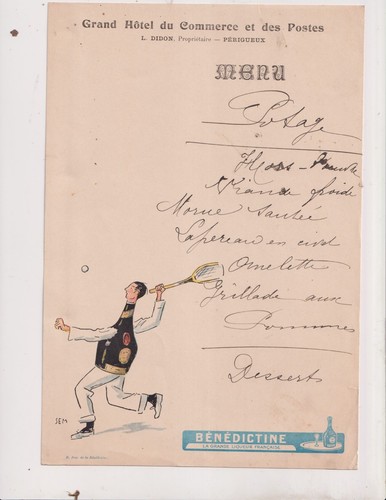 Grand Hôtel du Commerce et des Postes
L. DIDON, Propriétaire — PÉRIGUEUX
MENU
Potage
Hors-
Viande froide
Morue sautée
Lapereau en civet
Omelette
Grillade aux
Pommes
Desserts
SEM
BÉNÉDICTINE
LA GRANDE LIQUEUR FRANÇAISE